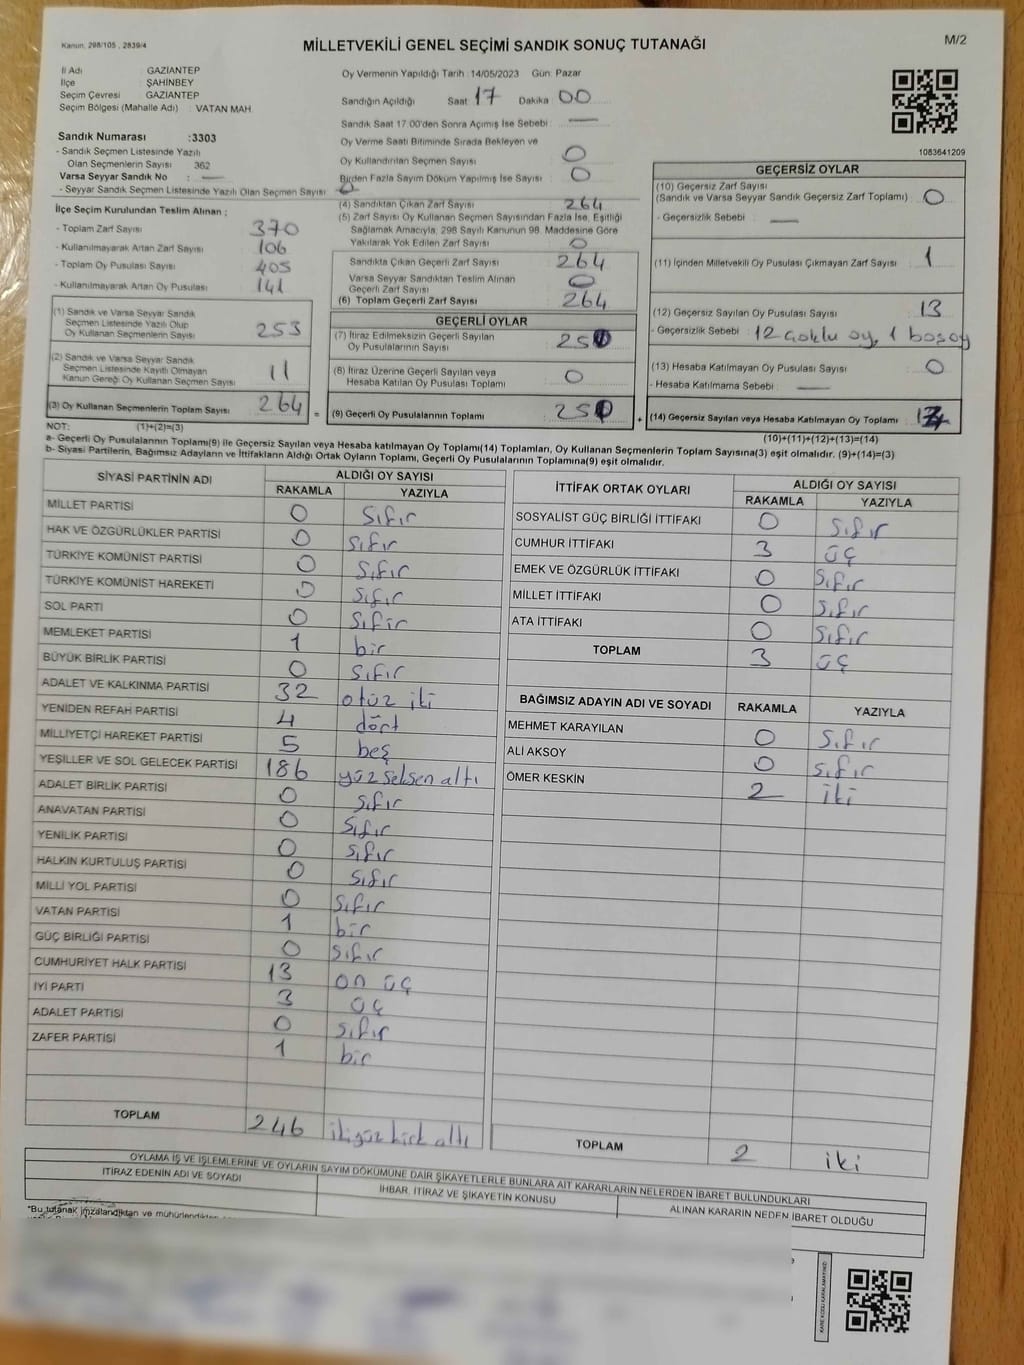 Kanun, 298/105 , 2839/4
MİLLETVEKİLİ GENEL SEÇİMİ SANDIK SONUÇ TUTANAĞI
M/2
İl Adı : GAZİANTEP
İlçe : ŞAHİNBEY
Seçim Çevresi : GAZİANTEP
Seçim Bölgesi (Mahalle Adı) : VATAN MAH.
Sandık Numarası :3303
- Sandık Seçmen Listesinde Yazılı
Olan Seçmenlerin Sayısı : 362
Varsa Seyyar Sandık No : —
- Seyyar Sandık Seçmen Listesinde Yazılı Olan Seçmen Sayısı : 0
Oy Vermenin Yapıldığı Tarih : 14/05/2023 Gün: Pazar
Sandığın Açıldığı Saat 17 Dakika 00
Sandık Saat 17.00'den Sonra Açımış İse Sebebi : —
Oy Verme Saati Bitiminde Sırada Bekleyen ve
Oy Kullandırılan Seçmen Sayısı : 0
Birden Fazla Sayım Döküm Yapılmış İse Sayısı : 0
1083641209
İlçe Seçim Kurulundan Teslim Alınan :
- Toplam Zarf Sayısı : 370
- Kullanılmayarak Artan Zarf Sayısı : 106
- Toplam Oy Pusulası Sayısı : 405
- Kullanılmayarak Artan Oy Pusulası : 141
(1) Sandık ve Varsa Seyyar Sandık
Seçmen Listesinde Yazılı Olup
Oy Kullanan Seçmenlerin Sayısı : 253
(2) Sandık ve Varsa Seyyar Sandık
Seçmen Listesinde Kayıtlı Olmayan
Kanun Gereği Oy Kullanan Seçmen Sayısı : 11
(3) Oy Kullanan Seçmenlerin Toplam Sayısı : 264 =
(4) Sandıktan Çıkan Zarf Sayısı : 264
(5) Zarf Sayısı Oy Kullanan Seçmen Sayısından Fazla İse, Eşitliği
Sağlamak Amacıyla, 298 Sayılı Kanunun 98. Maddesine Göre
Yakılarak Yok Edilen Zarf Sayısı : 0
Sandıkta Çıkan Geçerli Zarf Sayısı : 264
Varsa Seyyar Sandıktan Teslim Alınan
Geçerli Zarf Sayısı : 0
(6) Toplam Geçerli Zarf Sayısı : 264
GEÇERLİ OYLAR
(7) İtiraz Edilmeksizin Geçerli Sayılan
Oy Pusulalarının Sayısı : 250
(8) İtiraz Üzerine Geçerli Sayılan veya
Hesaba Katılan Oy Pusulası Toplamı : 0
(9) Geçerli Oy Pusulalarının Toplamı : 250 +
GEÇERSİZ OYLAR
(10) Geçersiz Zarf Sayısı
(Sandık ve Varsa Seyyar Sandık Geçersiz Zarf Toplamı) : 0
- Geçersizlik Sebebi : —
(11) İçinden Milletvekili Oy Pusulası Çıkmayan Zarf Sayısı : 1
(12) Geçersiz Sayılan Oy Pusulası Sayısı : 13
- Geçersizlik Sebebi : 12 çoklu oy, 1 boş oy
(13) Hesaba Katılmayan Oy Pusulası Sayısı : 0
- Hesaba Katılmama Sebebi : —
(14) Geçersiz Sayılan veya Hesaba Katılmayan Oy Toplamı :
NOT: (1)+(2)=(3)
(10)+(11)+(12)+(13)=(14)
a- Geçerli Oy Pusulalarının Toplamı(9) ile Geçersiz Sayılan veya Hesaba katılmayan Oy Toplamı(14) Toplamları, Oy Kullanan Seçmenlerin Toplam Sayısına(3) eşit olmalıdır. (9)+(14)=(3)
b- Siyasi Partilerin, Bağımsız Adayların ve İttifakların Aldığı Ortak Oyların Toplamı, Geçerli Oy Pusulalarının Toplamına(9) eşit olmalıdır.
SİYASİ PARTİNİN ADI ALDIĞI OY SAYISI
RAKAMLA YAZIYLA
MİLLET PARTİSİ 0 sıfır
HAK VE ÖZGÜRLÜKLER PARTİSİ 0 sıfır
TÜRKİYE KOMÜNİST PARTİSİ 0 sıfır
TÜRKİYE KOMÜNİST HAREKETİ 0 sıfır
SOL PARTİ 0 sıfır
MEMLEKET PARTİSİ 1 bir
BÜYÜK BİRLİK PARTİSİ 0 sıfır
ADALET VE KALKINMA PARTİSİ 32 otuz iki
YENİDEN REFAH PARTİSİ 4 dört
MİLLİYETÇİ HAREKET PARTİSİ 5 beş
YEŞİLLER VE SOL GELECEK PARTİSİ 186 yüz seksen altı
ADALET BİRLİK PARTİSİ 0 sıfır
ANAVATAN PARTİSİ 0 sıfır
YENİLİK PARTİSİ 0 sıfır
HALKIN KURTULUŞ PARTİSİ 0 sıfır
MİLLİ YOL PARTİSİ 0 sıfır
VATAN PARTİSİ 1 bir
GÜÇ BİRLİĞİ PARTİSİ 0 sıfır
CUMHURİYET HALK PARTİSİ 13 on üç
İYİ PARTİ 3 üç
ADALET PARTİSİ 0 sıfır
ZAFER PARTİSİ 1 bir
TOPLAM 246 ikiyüz kırk altı
İTTİFAK ORTAK OYLARI ALDIĞI OY SAYISI
RAKAMLA YAZIYLA
SOSYALİST GÜÇ BİRLİĞİ İTTİFAKI 0 sıfır
CUMHUR İTTİFAKI 3 üç
EMEK VE ÖZGÜRLÜK İTTİFAKI 0 sıfır
MİLLET İTTİFAKI 0 sıfır
ATA İTTİFAKI 0 sıfır
TOPLAM 3 üç
BAĞIMSIZ ADAYIN ADI VE SOYADI RAKAMLA YAZIYLA
MEHMET KARAYILAN 0 sıfır
ALİ AKSOY 0 sıfır
ÖMER KESKİN 2 iki
TOPLAM 2 iki
OYLAMA İŞ VE İŞLEMLERİNE VE OYLARIN SAYIM DÖKÜMÜNE DAİR ŞİKAYETLERLE BUNLARA AİT KARARLARIN NELERDEN İBARET BULUNDUKLARI
İTİRAZ EDENİN ADI VE SOYADI
İHBAR, İTİRAZ VE ŞİKAYETİN KONUSU
ALINAN KARARIN NEDEN İBARET OLDUĞU
*Bu tutanak imzalandıktan ve mühürlendikten